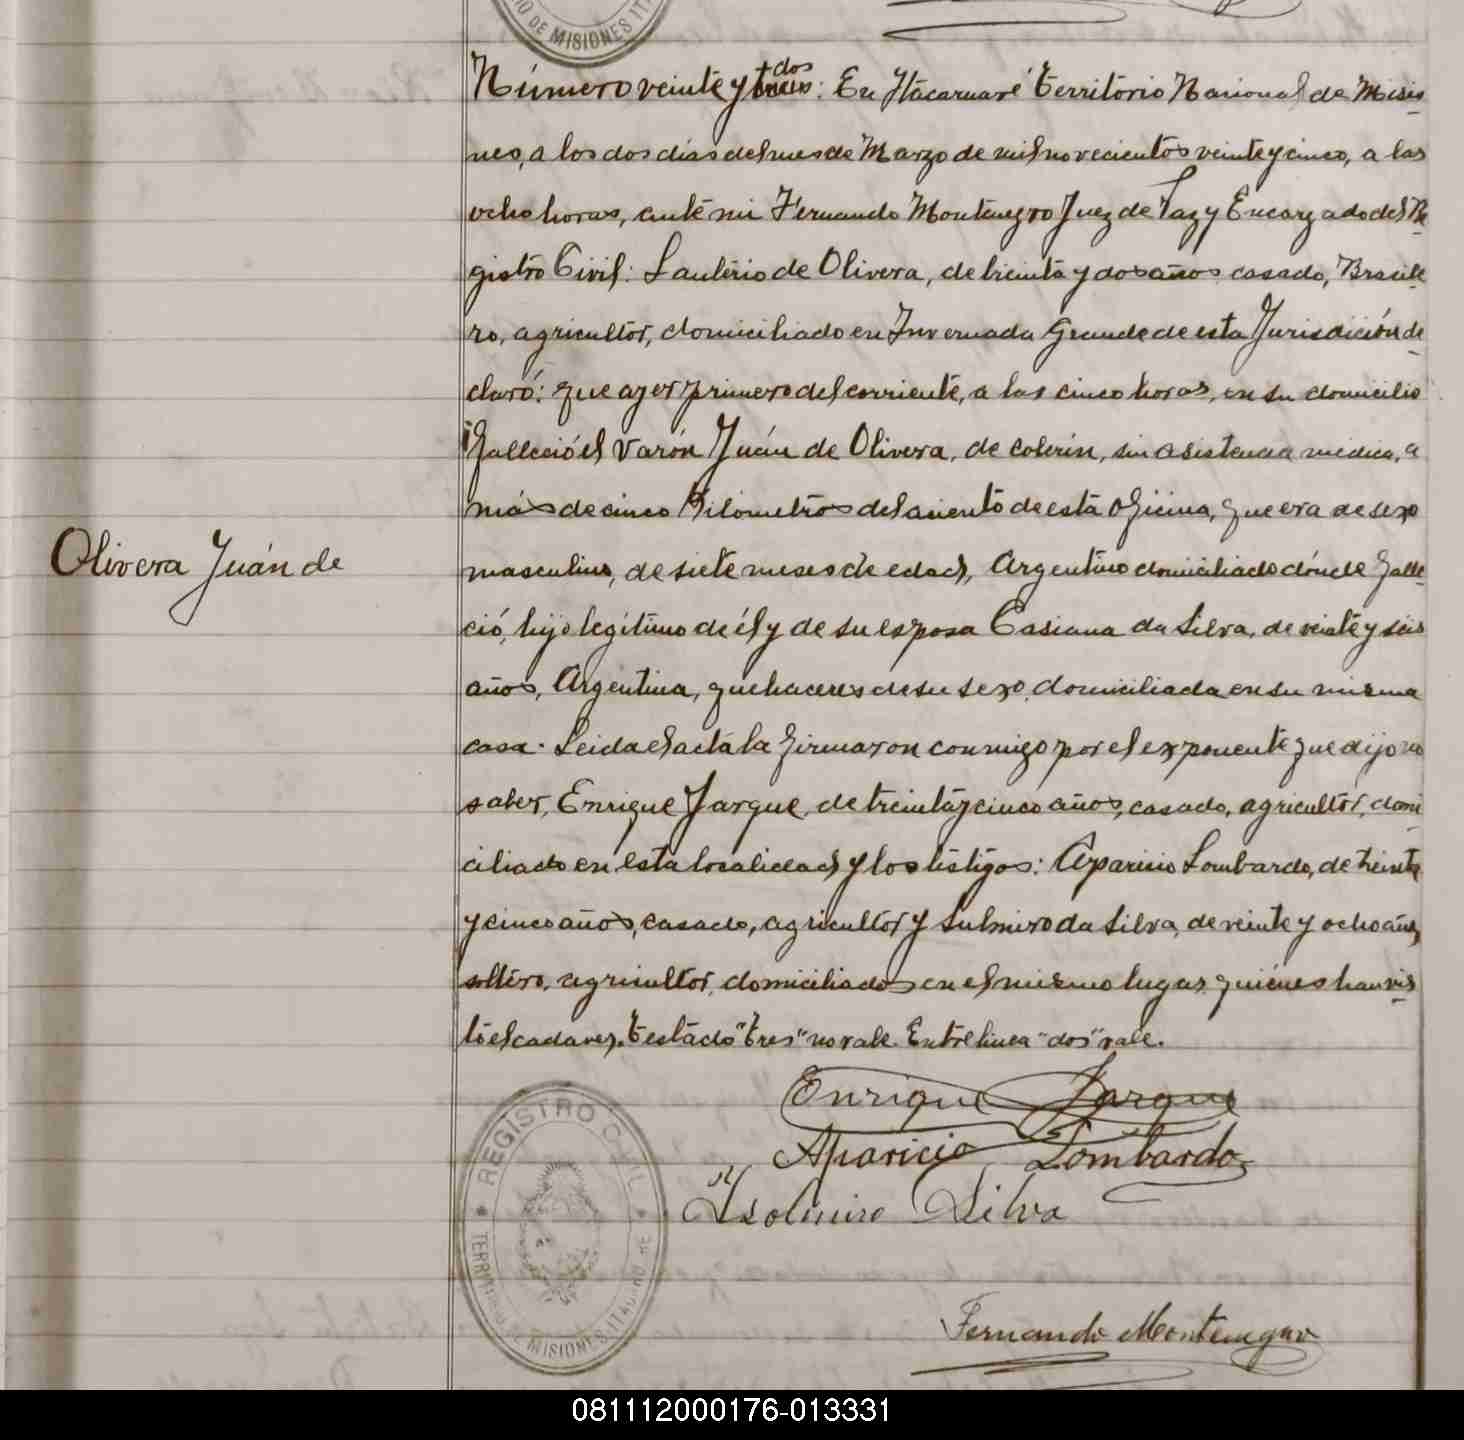 DE MISIONES ITA
dos
Número veinte y tres: En Itacaruaré Territorio Nacional de Misio-
nes, a los dos días del mes de Marzo de mil novecientos veinte y cinco, a las
ocho horas, ante mi Fernando Montenegro Juez de Paz y Encargado del Re-
gistro Civil: Lautério de Olivera, de treinta y dos años casado, Brasile-
ro, agricultor, domiciliado en Invernada Grande de esta Jurisdicción de-
claró: que ayer primero del corriente, a las cinco horas, en su domicilio
falleció el varón Juán de Olivera, de coterin, sin asistencia médica, a
más de cinco Kilómetros del asiento de esta oficina, que era de sexo
Olivera Juán de
masculino, de siete meses de edad, Argentino domiciliado dónde falle-
ció, hijo legítimo de él y de su esposa Casiana da Silva, de veinte y seis
años, Argentina, quehaceres de su sexo, domiciliada en su misma
casa. Leida el acta la firmaron conmigo por el exponente que dijo no
saber, Enrique Jarque, de treinta y cinco años, casado, agricultor, domi-
ciliado en esta localidad y los testigos: Aparicio Lombardo, de treinta
y cinco años, casado, agricultor y Sulmiro da Silva, de veinte y ocho años,
soltero, agricultor, domiciliados en el mismo lugar, quiénes han vis-
to el cadaver. Testado "tres" no vale. Entrelinea "dos" vale.
Enrique Jarque
Aparicio Lombardo
Silva
REGISTRO CIVIL
MISIONES
Fernando Montenegro
081112000176-013331